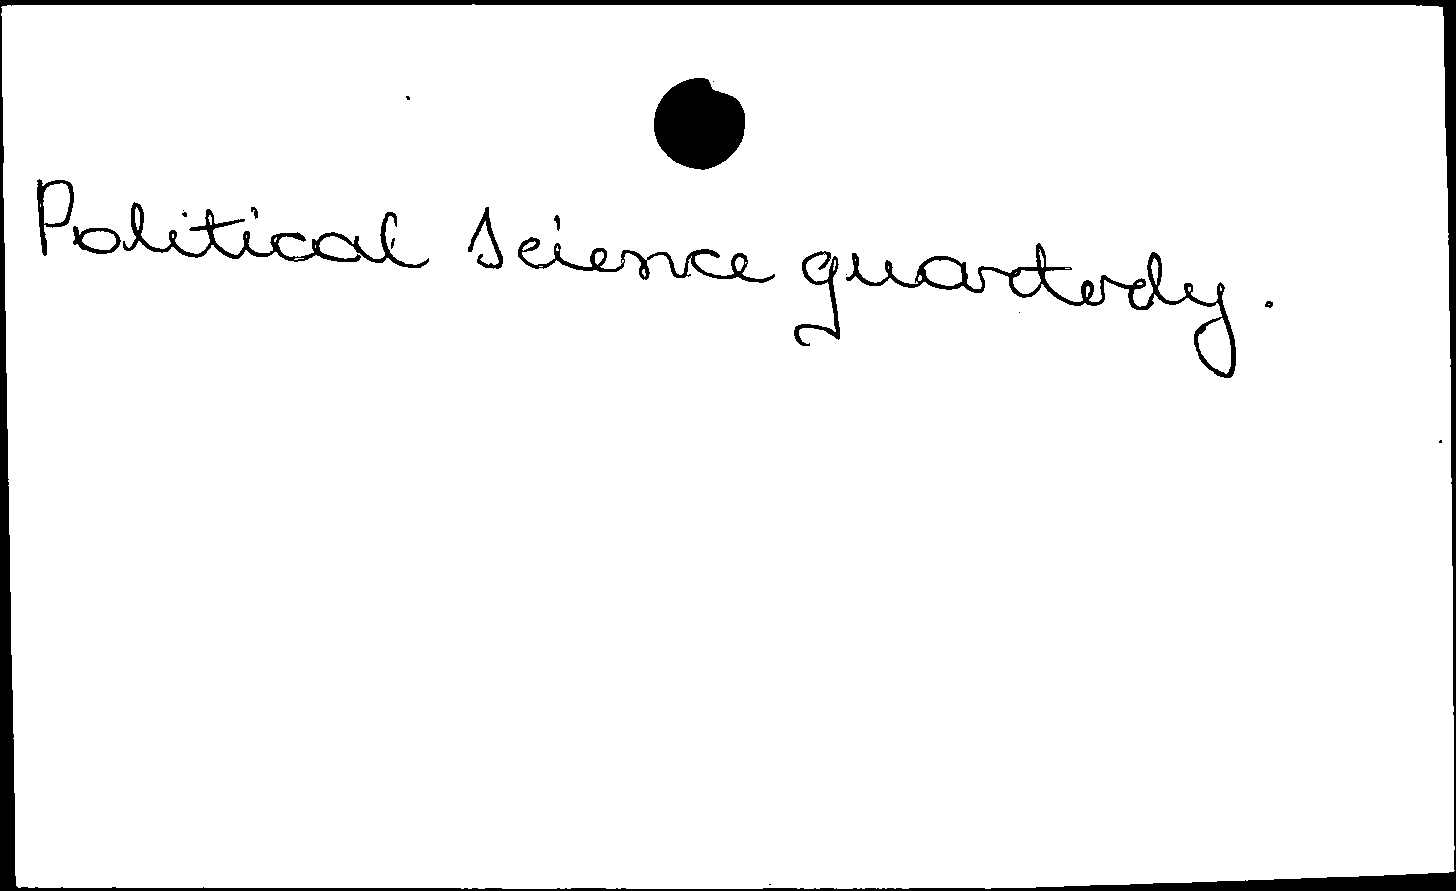 Political Science quarterly.